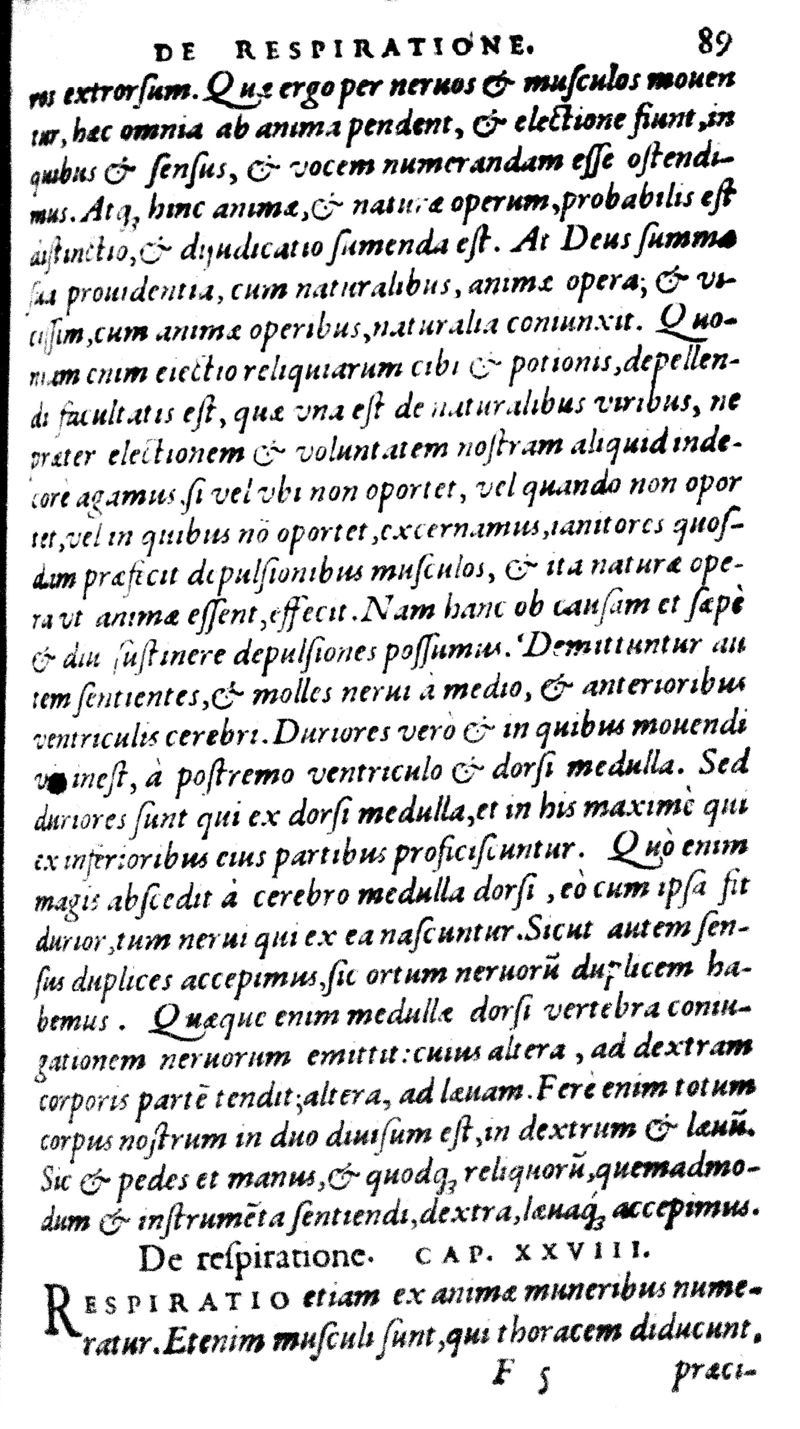 DE RESPIRATIONE. 89
ros extrorſum. Quæ ergo per neruos & muſculos mouen
tur, hæc omnia ab anima pendent, & electione fiunt, in
quibus & ſenſus, & vocem numerandam eſſe oſtendi-
mus. Atq; hinc animæ, & naturæ operum, probabilis eſt
diſtinctio, & dijudicatio ſumenda eſt. At Deus ſumma
ſua prouidentia, cum naturalibus, animæ opera; & vi-
ciſſim, cum animæ operibus, naturalia coniunxit. Quo-
niam enim eiectio reliquiarum cibi & potionis, depellen-
di facultatis eſt, quæ vna eſt de naturalibus viribus, ne
præter electionem & voluntatem noſtram aliquid inde-
corè agamus, ſi vel vbi non oportet, vel quando non opor
tet, vel in quibus nō oportet, excernamus, ianitores quoſ-
dam præficit depulſionibus muſculos, & ita naturæ ope-
ra vt animæ eſſent, effecit. Nam hanc ob cauſam et ſæpè
& diu ſuſtinere depulſiones poſſumus. Demittuntur au
tem ſentientes, & molles nerui à medio, & anterioribus
ventriculis cerebri. Duriores verò & in quibus mouendi
ineſt, à poſtremo ventriculo & dorſi medulla. Sed
duriores ſunt qui ex dorſi medulla, et in his maximè qui
ex inferioribus eius partibus proficiſcuntur. Quò enim
magis abſcedit à cerebro medulla dorſi, eò cum ipſa fit
durior, tum nerui qui ex ea naſcuntur. Sicut autem ſen-
ſus duplices accepimus, ſic ortum neruorū duplicem ha-
bemus. Quæque enim medullæ dorſi vertebra coniu-
gationem neruorum emittit: cuius altera, ad dextram
corporis partē tendit; altera, ad læuam. Ferè enim totum
corpus noſtrum in duo diuiſum eſt, in dextrum & læuū.
Sic & pedes et manus, & quodq; reliquorū, quemadmo-
dum & inſtrumēta ſentiendi, dextra, læuaq́; accepimus.
De reſpiratione. CAP. XXVIII.
RESPIRATIO etiam ex animæ muneribus nume-
ratur. Etenim muſculi ſunt, qui thoracem diducunt,
F 5 præci-